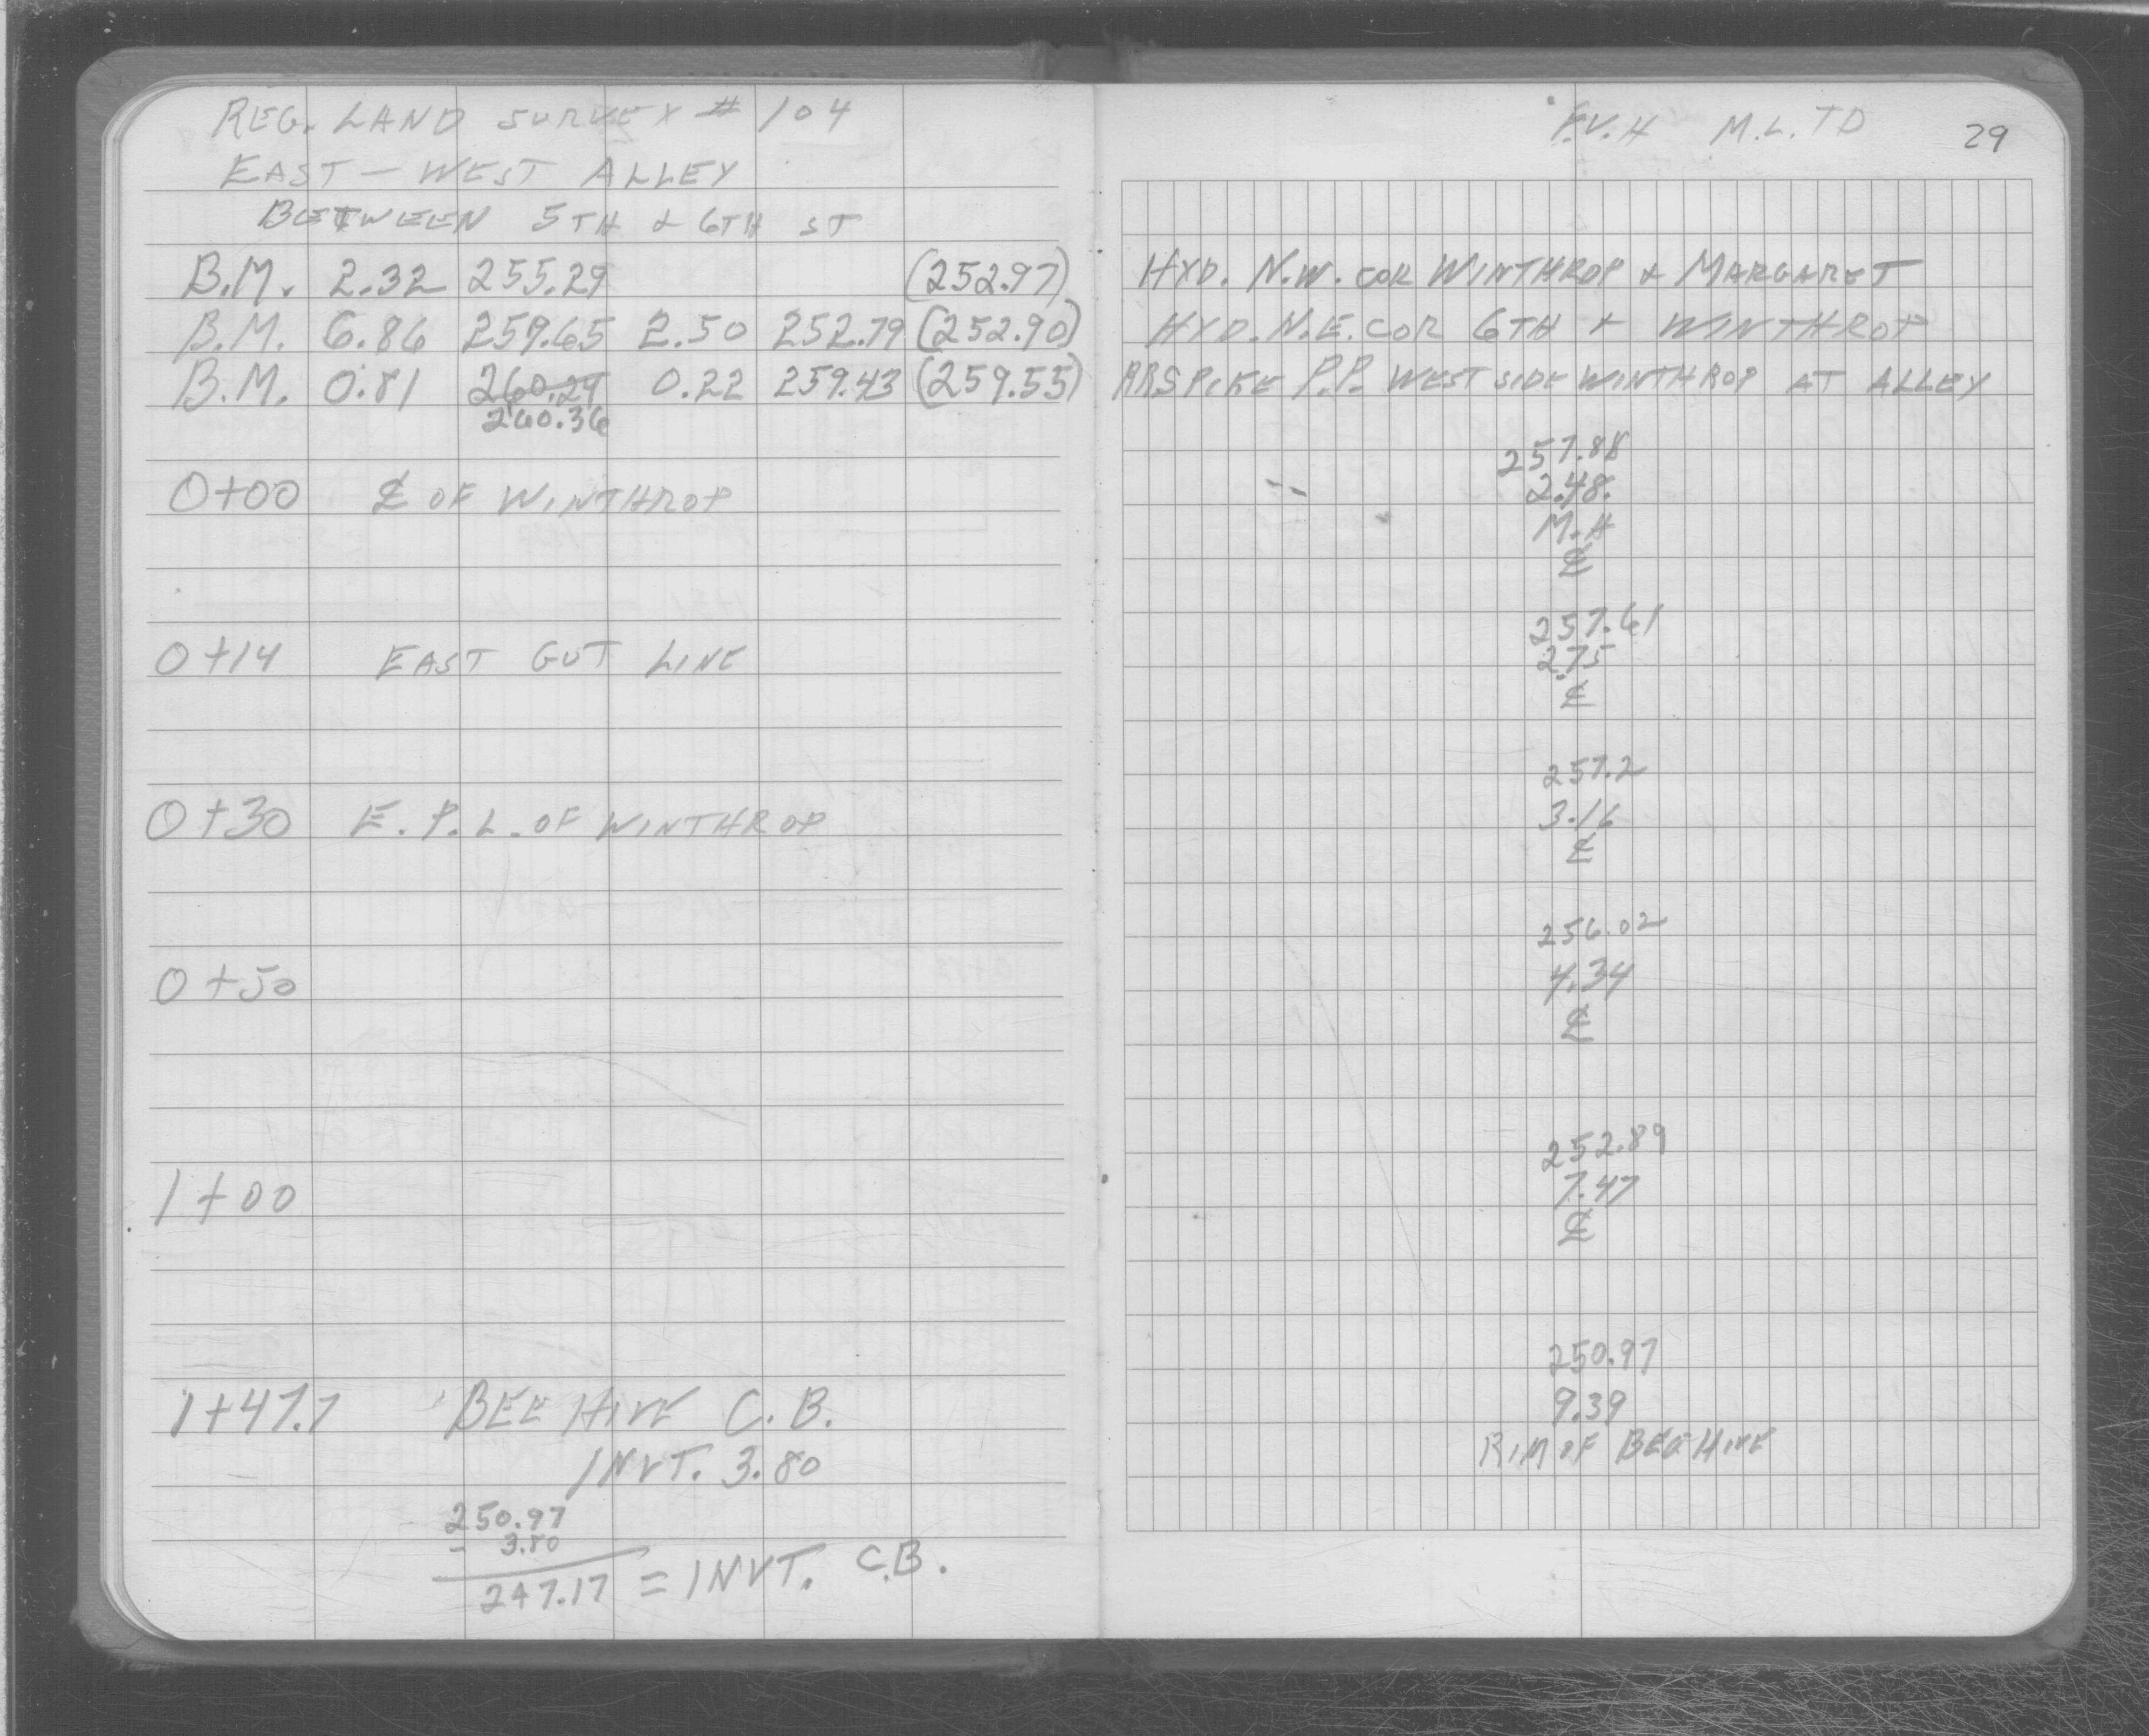 REG. LAND SURVEY # 104
EAST - WEST ALLEY
BETWEEN 5TH & 6TH ST
B.M. 2.32 255.29 (252.97)
B.M. 6.86 259.65 2.50 252.79 (252.90)
B.M. 0.81 260.29 0.22 259.43 (259.55)
260.36
0+00 ℄ OF WINTHROP
0+14 EAST GUT LINE
0+30 E. P. L. OF WINTHROP
0+50
1+00
1+47.7 BEE HIVE C. B.
INVT. 3.80
250.97
- 3.80
247.17 = INVT. C.B.
F.V.H M.L. TD 29
HYD. N.W. COR WINTHROP & MARGARET
HYD. N.E. COR 6TH & WINTHROP
RRSPIKE P.P. WEST SIDE WINTHROP AT ALLEY
257.88
2.48
M.H
℄
257.61
2.75
℄
257.2
3.16
℄
256.02
4.34
℄
252.89
7.47
℄
250.97
9.39
RIM OF BEE HIVE